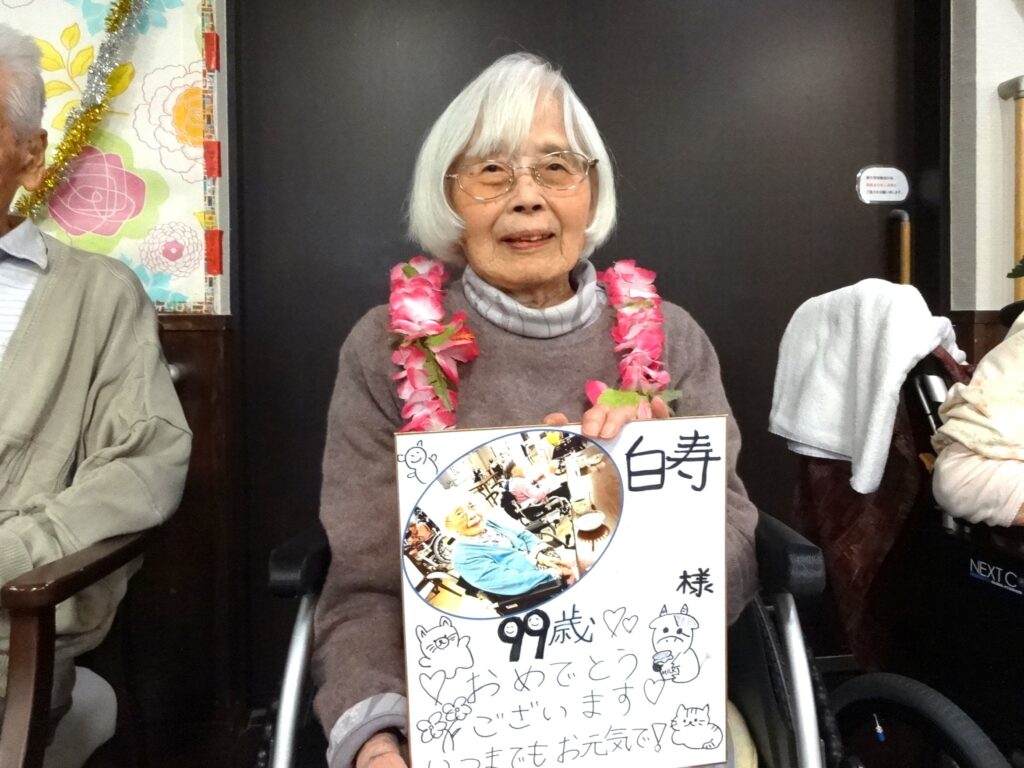 白寿
様
99歳
おめでとう
ございます
いつまでもお元気で!
MILK
NEXT C